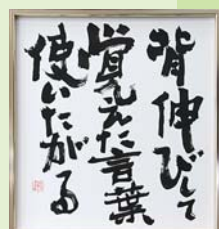 背伸びして
覚えた言葉
使いたがる